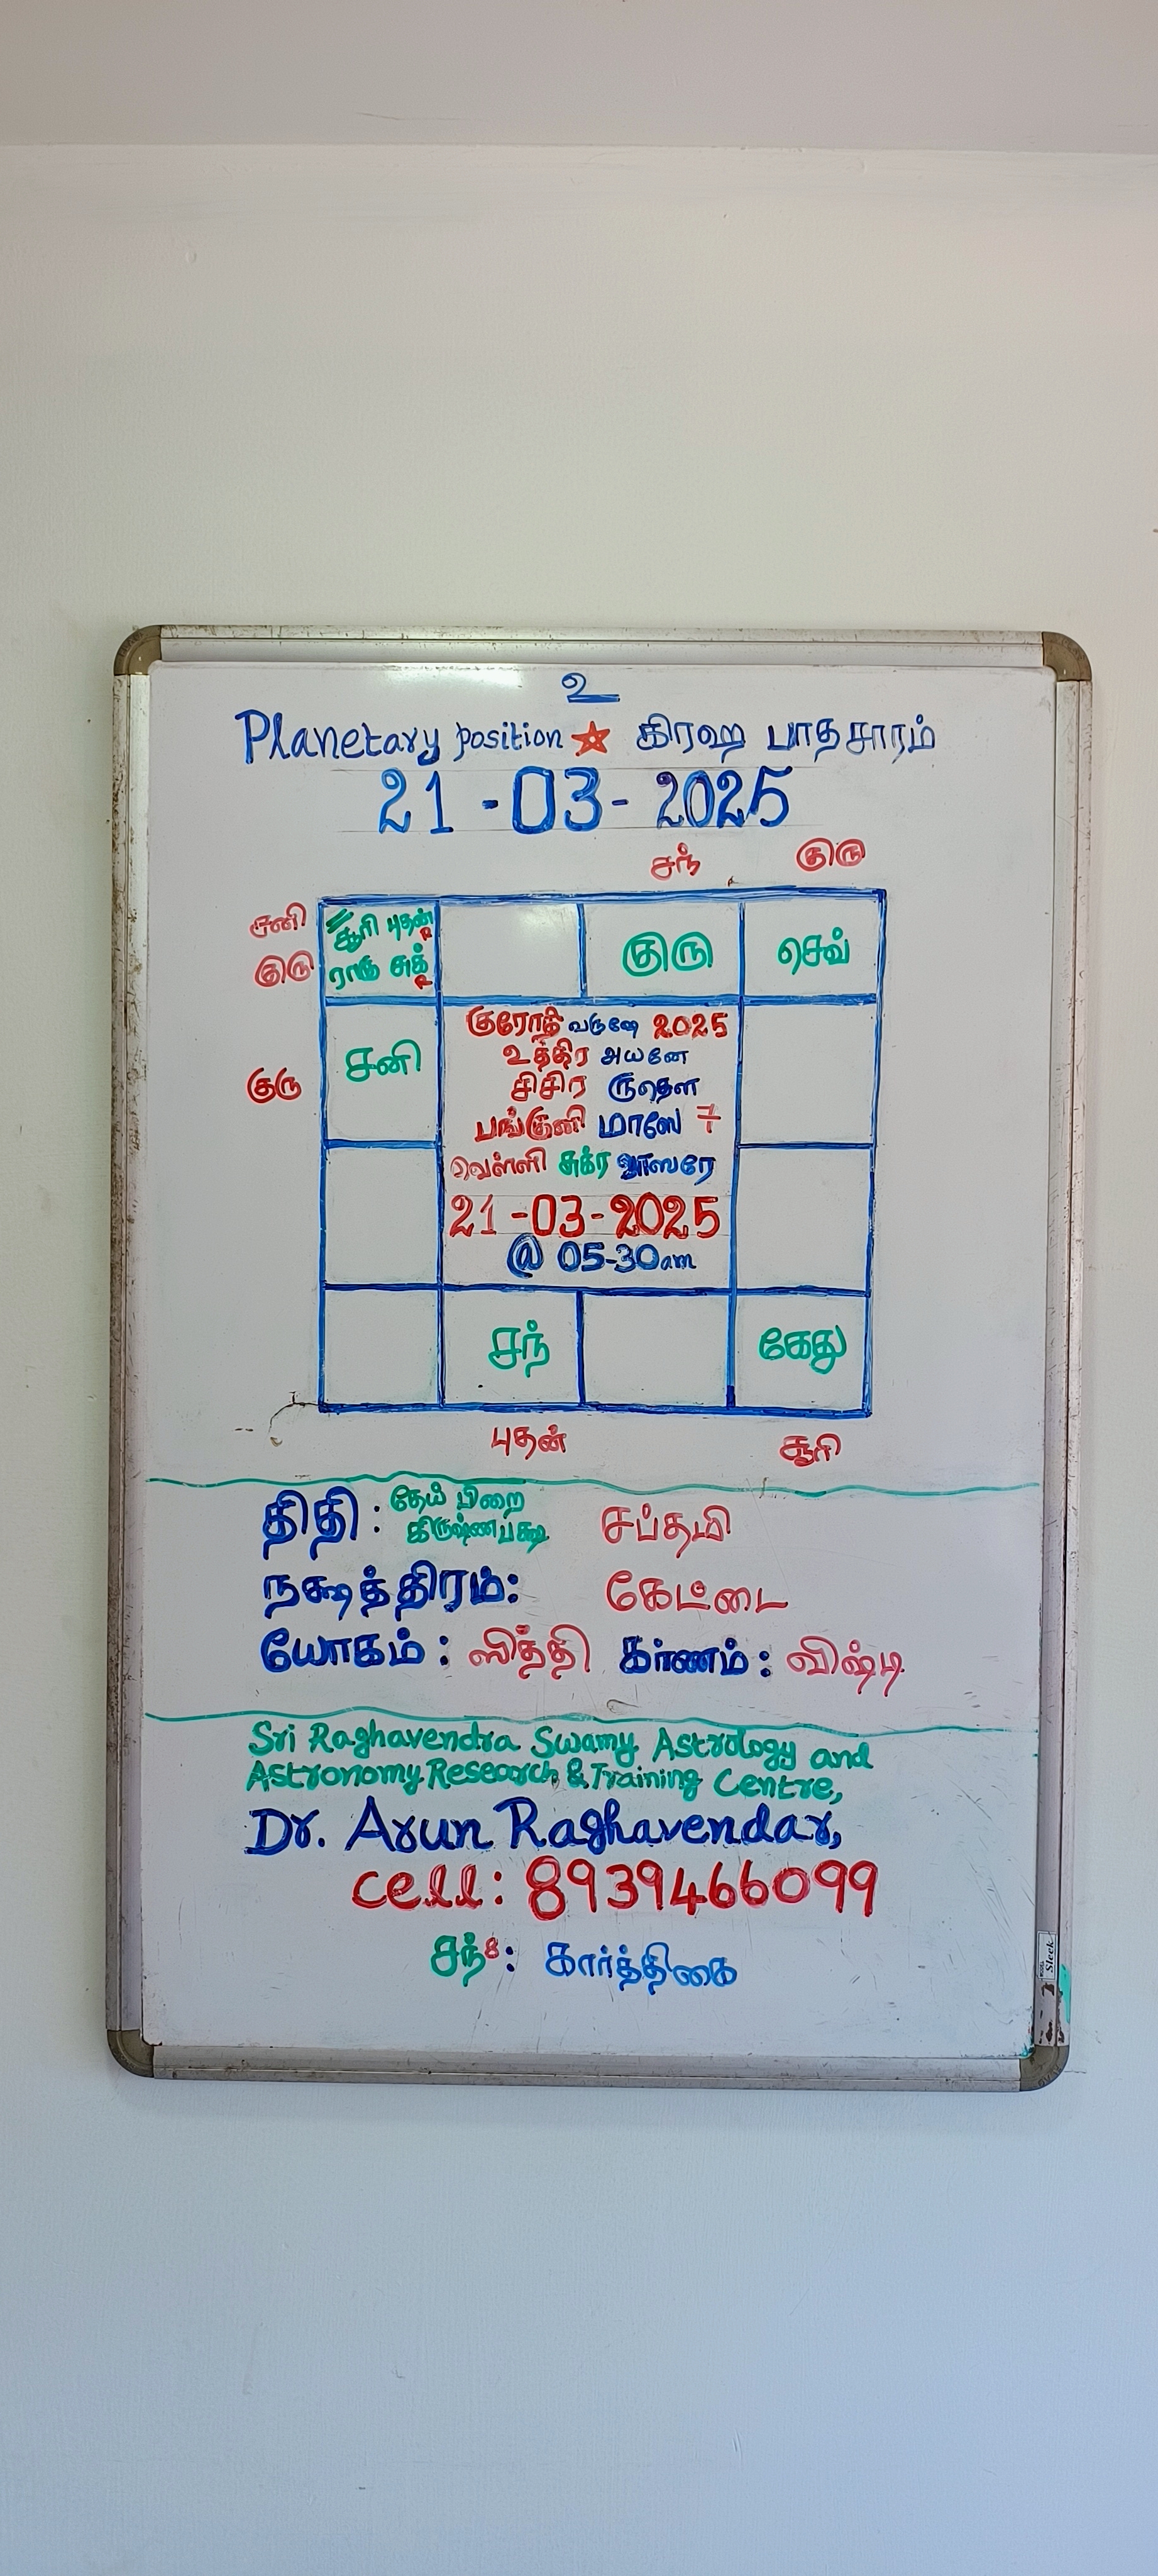 உ
Planetary position ★ கிரஹ பாதசாரம்
21 -03- 2025
சந் குரு
சனி சூரி புதன் R
குரு ராகு சுக் R
குரு செவ்
குரோதி வருஷே 2025
உத்திர அயனே
சனி
சிசிர ருதௌ
குரு
பங்குனி மாஸே 7
வெள்ளி சுக்ர வாஸரே
21-03-2025
@ 05-30am
சந் கேது
புதன் சூரி
திதி : தேய் பிறை சப்தமி
கிருஷ்ணபக்ஷ
நக்ஷத்திரம்: கேட்டை
யோகம் : ஸித்தி கர்ணம் : விஷ்டி
Sri Raghavendra Swamy Astrology and
Astronomy Research & Training Centre,
Dr. Arun Raghavendar,
cell: 8939466099
சந்8 : கார்த்திகை
Sleek